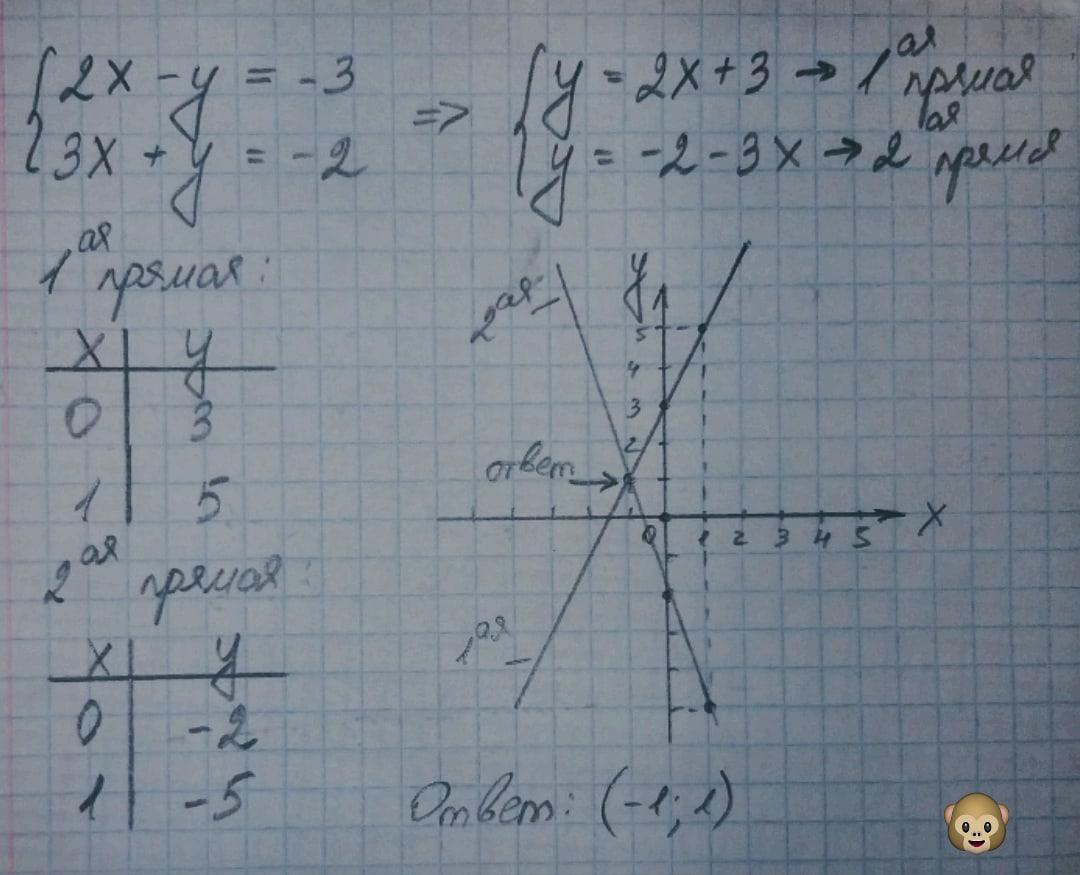 {2x - y = -3
3x + y = -2
=>
{y = 2x + 3 → 1ая прямая
y = -2 - 3x → 2ая прямя
1ая прямая:
x | y
0 | 3
1 | 5
2ая прямая:
x | y
0 | -2
1 | -5
y
2ая
5
4
3
2
ответ →
0 1 2 3 4 5 x
1ая
Ответ: (-1; 1)